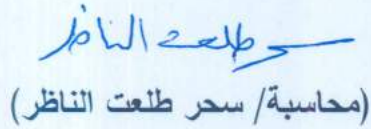 سحر طلعت الناظر
(محاسبة/ سحر طلعت الناظر)